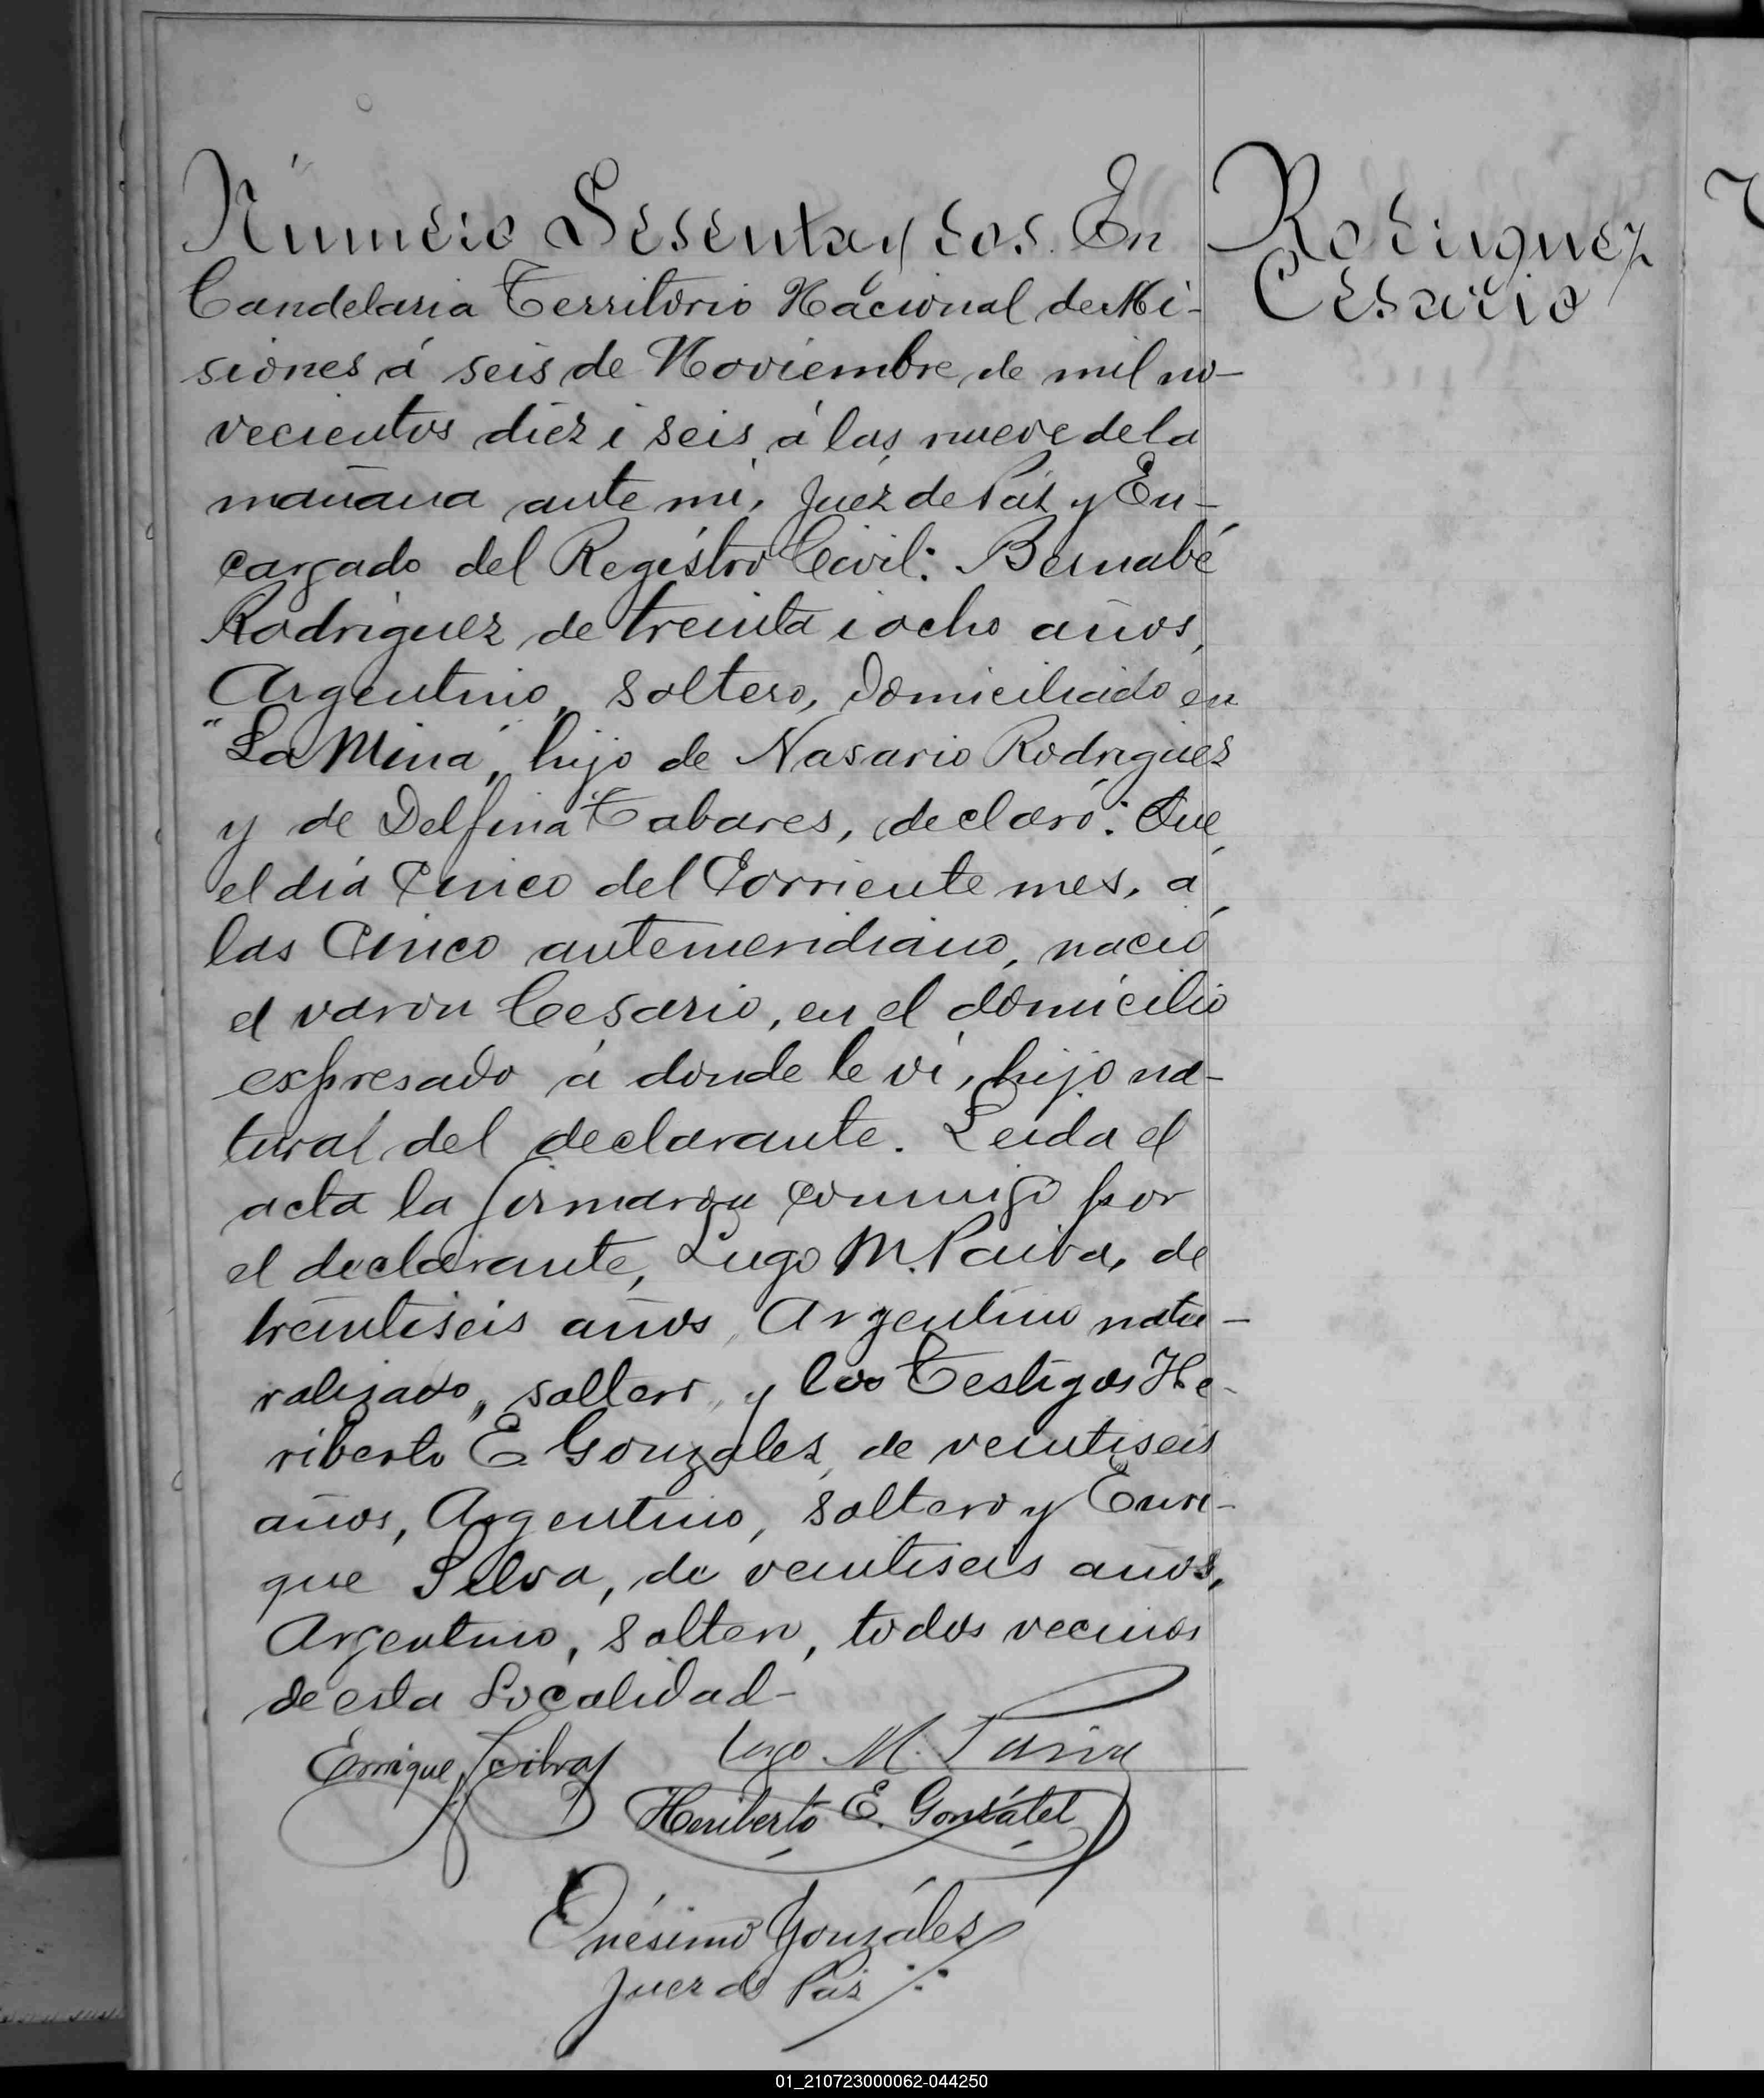 Número Sesenta y dos. En
Candelaria Territorio Nacional de Mi-
siones á seis de Noviembre de mil no-
vecientos diez i seis á las nueve de la
mañana ante mi, Juez de Paz y En-
cargado del Registro Civil: Bernabé
Rodriguez de treinta i ocho años,
Argentino, soltero, domiciliado en
"La Mina", hijo de Nasario Rodriguez
y de Delfina Tabares, declaró: Que
el día Cinco del Corriente mes, á
las Cinco antemeridiano, nació
el varon Cesario, en el domicilio
espresado á donde le ví, hijo na-
tural del declarante. Leida el
acta la firmaron conmigo por
el declarante, Lugo M. Paiva, de
treintiseis años, Argentino natu-
ralizado, soltero, y los Testigos He-
riberto E. Gonzalez, de veintiseis
años, Argentino, soltero y Enri-
que Silva, de veintiseis años,
Argentino, soltero, todos vecinos
de esta Localidad-
Enrique Silva Lugo M. Paiva
Heriberto E. Gonzalez
Onésimo Gonzáles
Juez de Paz
Rodriguez
Cesario
01_210723000062-044250